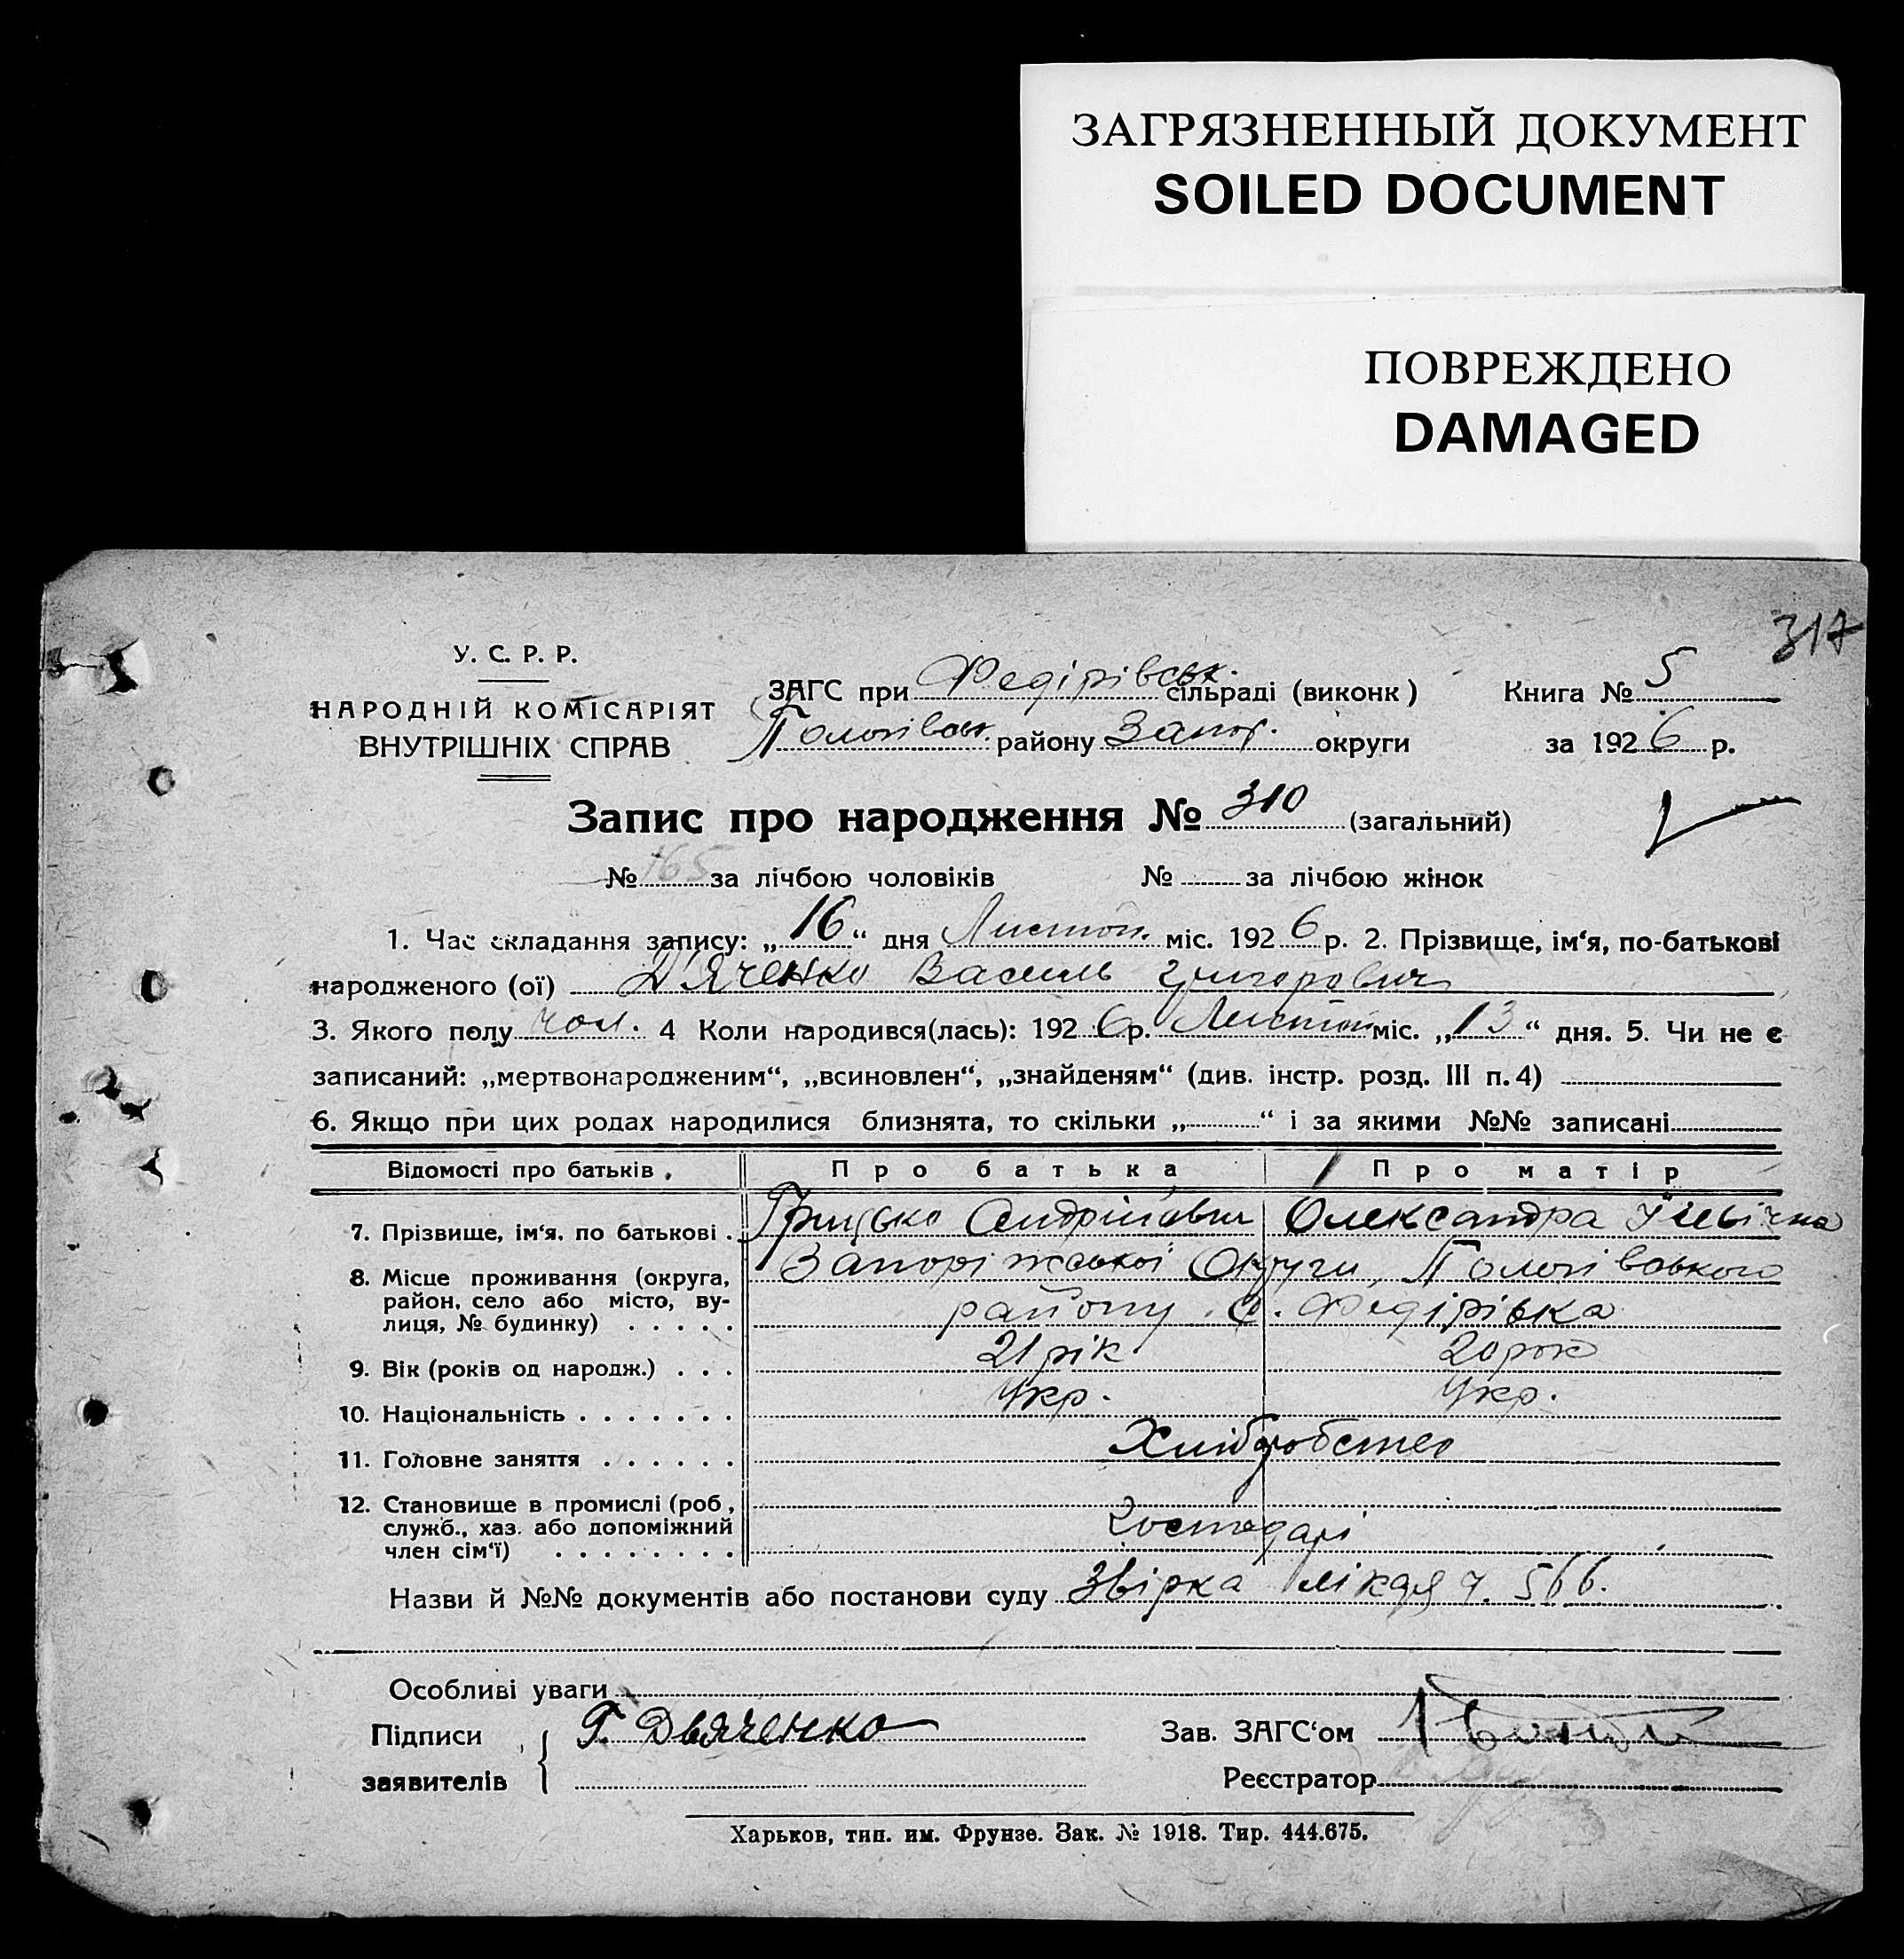 ЗАГРЯЗНЕННЫЙ ДОКУМЕНТ
SOILED DOCUMENT
ПОВРЕЖДЕНО
DAMAGED
317
У. С. Р. Р.
НАРОДНІЙ КОМІСАРІЯТ
ВНУТРІШНІХ СПРАВ
ЗАГС при Федірівськ. сільраді (виконк)
Пологівськ. району Запор. округи
Книга № 5
за 1926 р.
Запис про народження № 310 (загальний)
№ 165 за лічбою чоловіків № за лічбою жінок
1. Час складання запису: „16“ дня Листоп. міс. 1926 р. 2. Прізвище, ім‘я, по-батькові
народженого (ої) Д'яченко Василь Григорович
3. Якого полу чол. 4 Коли народився(лась): 1926 р. Листоп міс. „13“ дня. 5. Чи не є
записаний: „мертвонародженим“, „всиновлен“, „знайденям“ (див. інстр. розд. III п. 4)
6. Якщо при цих родах народилися близнята, то скільки „ “ і за якими №№ записані
Відомості про батьків. Про батька Про матір
7. Прізвище, ім‘я, по батькові . Грицько Андрійович Олександра Ільвічна
8. Місце проживання (округа, Запоріжської Округи, Пологівського
район, село або місто, ву-
лиця, № будинку) . . . . . району. С. Федірівка
9. Вік (років од народж.) . . . 21 рік 20 рок
10. Національність . . . . . . . Укр. Укр.
11. Головне заняття . . . . . . Хліборобство
12. Становище в промислі (роб,
служб., хаз. або допоміжний
член сім‘ї) . . . . . . . . Господарі
Назви й №№ документів або постанови суду Звірка лікаря ч. 566.
Особливі уваги
Підписи Г. Дьяченко Зав. ЗАГС‘ом
заявителів Реєстратор
Харьков, тип. им. Фрунзе. Зак. № 1918. Тир. 444.675.